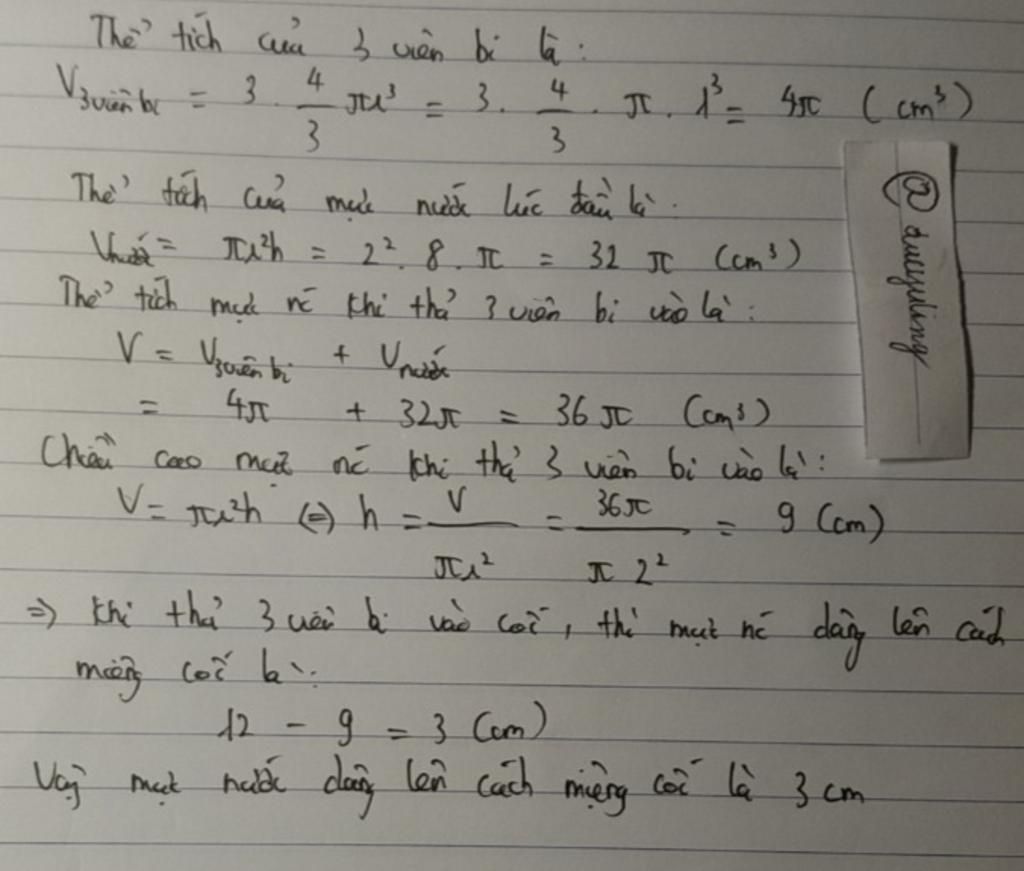 Thể tích của 3 viên bi là :
V3viên bi = 3 . 4/3 πr³ = 3 . 4/3 . π . 1³ = 4π (cm³)
Thể tích của mực nước lúc đầu là :
Vnước = πr²h = 2² . 8 . π = 32 π (cm³)
Thể tích mực nc khi thả 3 viên bi vào là :
V = V3viên bi + Vnước
= 4π + 32π = 36 π (cm³)
Chiều cao mực nc khi thả 3 viên bi vào là :
V = πr²h ⇔ h = V/πr² = 36π/π 2² = 9 (cm)
⇒ Khi thả 3 viên bi vào cốc, thì mực nc dâng lên cách
miệng cốc là :
12 - 9 = 3 (cm)
Vậy mực nước dâng lên cách miệng cốc là 3 cm